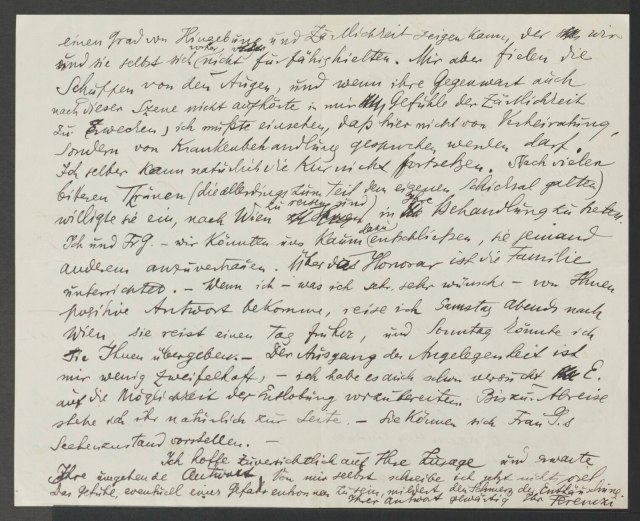 einen Grad von Hingebung und Zärtlichkeit zeigen kann, der wir
und sie selbst sich vorher nicht für fähig hielten. Mir aber fielen die
Schuppen von den Augen, und wenn ihre Gegenwart auch
nach dieser Szene nicht aufhörte in mir Gefühle der Zärtlichkeit
zu erwecken, ich mußte einsehen, daß hier nicht von Verheiratung,
sondern von Krankenbehandlung gesprochen werden darf.
Ich selber kann natürlich die Kur nicht fortsetzen. Nach vielen
bitteren Tränen (die allerdings zum Teil dem eigenen Schicksal galten)
willigte sie ein, nach Wien zu reisen und in Ihre Behandlung zu treten.
Ich und Fr G. – wir könnten uns kaum dazu entschließen, sie jemand
anderem anzuvertrauen. Über das Honorar ist die Familie
unterrichtet. – Wenn ich – was ich sehr, sehr wünsche – von Ihnen
positive Antwort bekomme, reise ich Samstag abends nach
Wien, sie reist einen Tag früher, und Sonntag könnte ich
sie Ihnen übergeben. – Der Ausgang der Angelegenheit ist
mir wenig zweifelhaft, – ich habe es auch schon versucht E.
auf die Möglichkeit der Entlobung vorzubereiten. Bis zur Abreise
stehe ich ihr natürlich zur Seite. – Sie können sich Frau G.s
Seelenzustand vorstellen. –
Ich hoffe zuversichtlich auf Ihre Zusage und erwarte
Ihre umgehende Antwort. Von mir selbst schreibe ich jetzt nichts
Das Gefühl, eventuell einer Gefahr entronnen zu sein, mildert den Schmerz der Enttäuschung.
Ihrer Antwort gewärtig Ihr Ferenczi